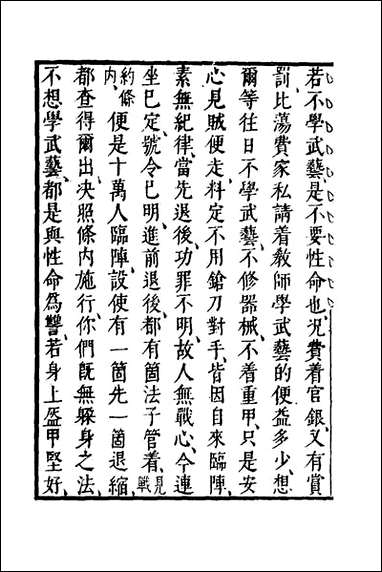 若不學武藝、是不要性命也、况費着官銀、又有賞
罰、比蕩費家私請着教師學武藝的便益多少、想
爾等往日不學武藝、不修器械、不着重甲、只是安
心見賊便走、料定不用鎗刀對手、皆因自來臨陣、
素無紀律、當先退後、功罪不明、故人無戰心、今連
坐已定、號令已明、進前退後、都有箇法子管着、見戰
約條內、便是十萬人臨陣、設使有一箇先一箇退縮、
都查得爾出、决照條內施行、你們旣無躱身之法、
不想學武藝、都是與性命爲讐、若身上盔甲堅好、